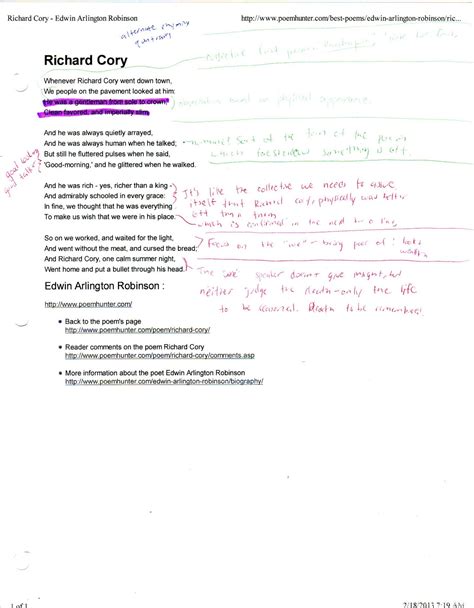 Richard Cory - Edwin Arlington Robinson
http://www.poemhunter.com/best-poems/edwin-arlington-robinson/ric...
alternate rhyming
quatrains
Richard Cory
Whenever Richard Cory went down town,
We people on the pavement looked at him:
He was a gentleman from sole to crown,
Clean favored, and imperially slim.
on physical appearance
And he was always quietly arrayed,
And he was always human when he talked;
the of the poem
But still he fluttered pulses when he said,
something is off.
'Good-morning,' and he glittered when he walked.
good looking
good talker
And he was rich - yes, richer than a king -
It's like the collective we needs to
And admirably schooled in every grace:
itself that Richard Cory physically was better
In fine, we thought that he was everything
off than them
To make us wish that we were in his place.
which is confirmed in the next line
So on we worked, and waited for the light,
Focus on the "we" - being poor
And went without the meat, and cursed the bread;
And Richard Cory, one calm summer night,
Went home and put a bullet through his head.
The speaker doesn't give insight, but
neither judge the death - only the life
to be Death to be remembered
Edwin Arlington Robinson :
http://www.poemhunter.com/
Back to the poem's page
http://www.poemhunter.com/poem/richard-cory/
Reader comments on the poem Richard Cory
http://www.poemhunter.com/poem/richard-cory/comments.asp
More information about the poet Edwin Arlington Robinson
http://www.poemhunter.com/edwin-arlington-robinson/biography/
1 of 1
2/18/2013 7:19 AM